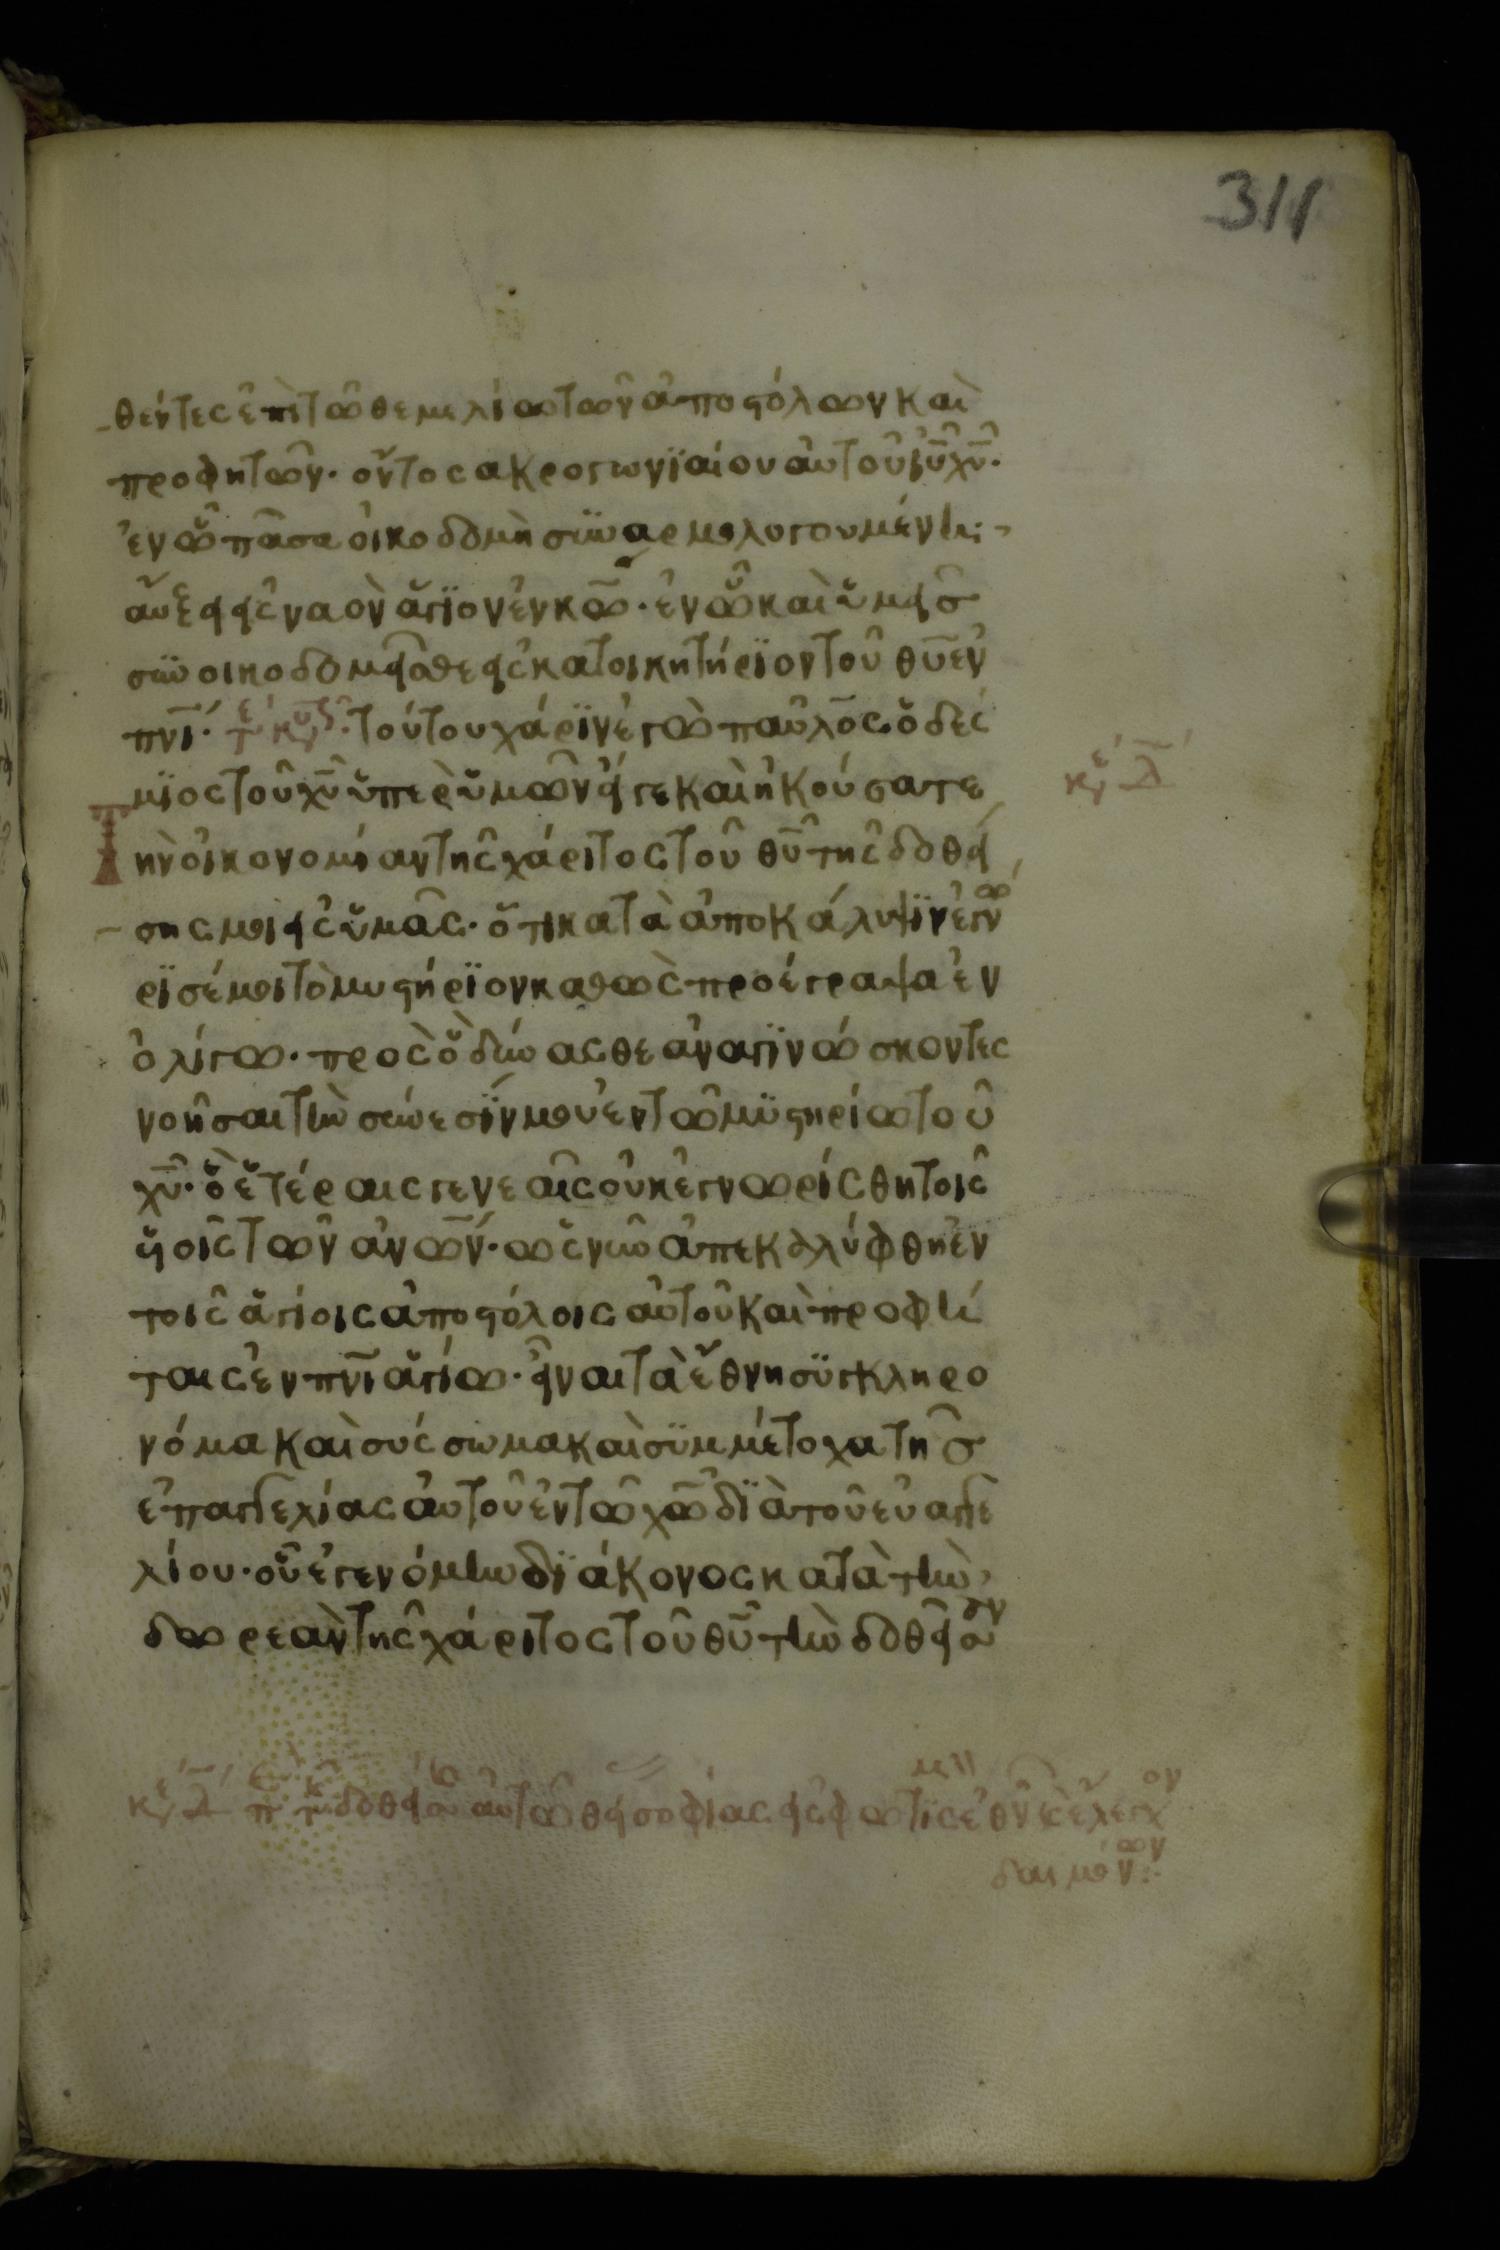 311
θέντες ἐπὶ τῶ θεμελίω τῶν ἀποστόλων καὶ
προφητῶν· οντος ακρογωνϊαίου αὐτοῦ ἰῦ χῦ·
ἐν ὧ πᾶσα οἰκοδομὴ συναρμολογουμένη
αὔξει εἰς ναὸν ἅγϊον ἐν κῶ· ἐν ὧ καὶ ὑμεῖς
συνοικοδομεῖσθε εἰς κατοικητήρϊον τοῦ θῦ ἐν
πνι· τούτου χάρϊν ἐγὼ παῦλος ὁ δέσ
μϊος τοῦ χῦ ὑπὲρ ὑμῶν εἴγε καὶ ἠκούσατε
Τὴν οἰκονομίαν τῆς χάριτος τοῦ θῦ τῆς δοθεί
σης μοι εἰς ὑμᾶς· ὅτι κατὰ ἀποκάλυψϊν ἐγνώ
ρϊσέ μοι τὸ μυστήρϊον καθὼς προέγραψα ἐν
ὀλίγω· πρὸς ὃ δύνασθε ἀναγϊνώσκοντες
νοῆσαι τὴν σύνεσϊν μου ἐν τῶ μϋστηρίω τοῦ
χῦ· ὃ ἑτέραις γενεαῖς οὐκ ἐγνωρίσθη τοῖς
υἱοῖς τῶν ἀνων· ὡς νῦν ἀπεκαλύφθη ἐν
τοῖς ἁγίοις ἀποστόλοις αὐτοῦ καὶ προφή
ταις ἐν πνι ἁγίω· εἶναι τὰ ἔθνη σϋγκληρο
νόμα καὶ σύσσωμα καὶ σϋμμέτοχα τῆς
ἐπαγγελίας αὐτοῦ ἐν τῶ χῶ δϊὰ τοῦ εὐαγγε
λίου· οὗ ἐγενόμην δϊάκονος κατὰ τὴν
δωρεὰν τῆς χάριτος τοῦ θῦ τὴν δοθεῖσαν
δοθεί αὐτῶ θεί σοφίας εἰς φωτϊσ ἐθν καὶ ἔλεγχον
δαιμόνων: